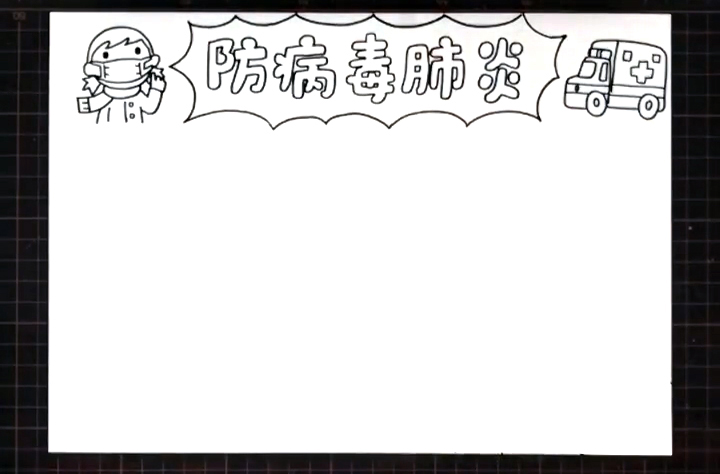 防病毒肺炎